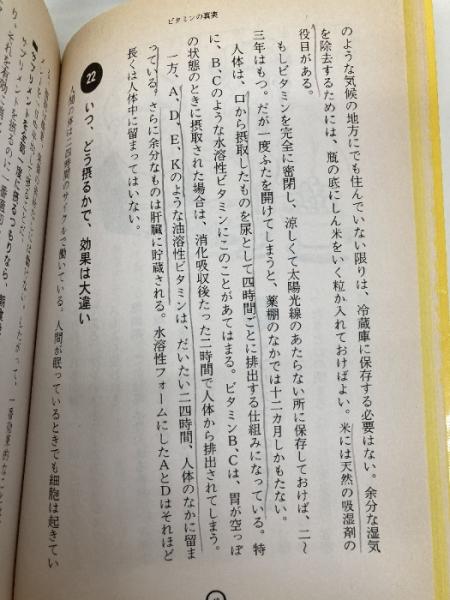 ビタミンの真実
のような気候の地方にでも住んでいない限りは、冷蔵庫に保存する必要はない。余分な湿気
を除去するためには、瓶の底にしん米をいく粒か入れておけばよい。米には天然の吸湿剤の
役目がある。
もしビタミンを完全に密閉し、涼しくて太陽光線のあたらない所に保存しておけば、二〜
三年はもつ。だが一度ふたを開けてしまうと、薬棚のなかでは十二カ月しかもたない。
人体は、口から摂取したものを尿として四時間ごとに排出する仕組みになっている。特
に、B、Cのような水溶性ビタミンにこのことがあてはまる。ビタミンB、Cは、胃が空っぽ
の状態のときに摂取された場合は、消化吸収後たった二時間で人体から排出されてしまう。
一方、A、D、E、Kのような油溶性ビタミンは、だいたい二四時間、人体のなかに留ま
っている。さらに余分なものは肝臓に貯蔵される。水溶性フォームにしたAとDはそれほど
長くは人体中に留まってはいない。
22 いつ、どう摂るかで、効果は大違い
人間の体は二四時間のサイクルで働いている。人間が眠っているときでも細胞は起きてい